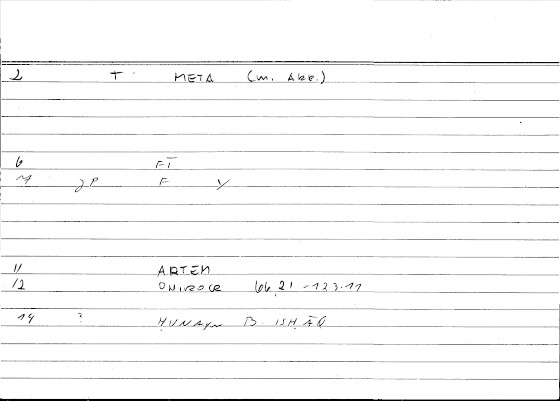 2 T META (m. Akk.)
6 FT
M JP F Y
11 ARTEM
12 ONIROCR 66,21 -123.11
14 ? ḤUNAYN B. ISḤĀQ